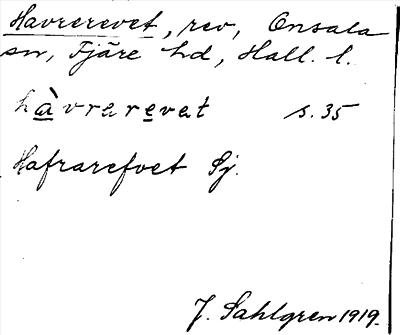 Havrerevet, rev, Onsala
sn, Fjäre hd, Hall. l.
hàvrarevet s. 35
Hafrarefvet Sj.
J. Sahlgren 1919.